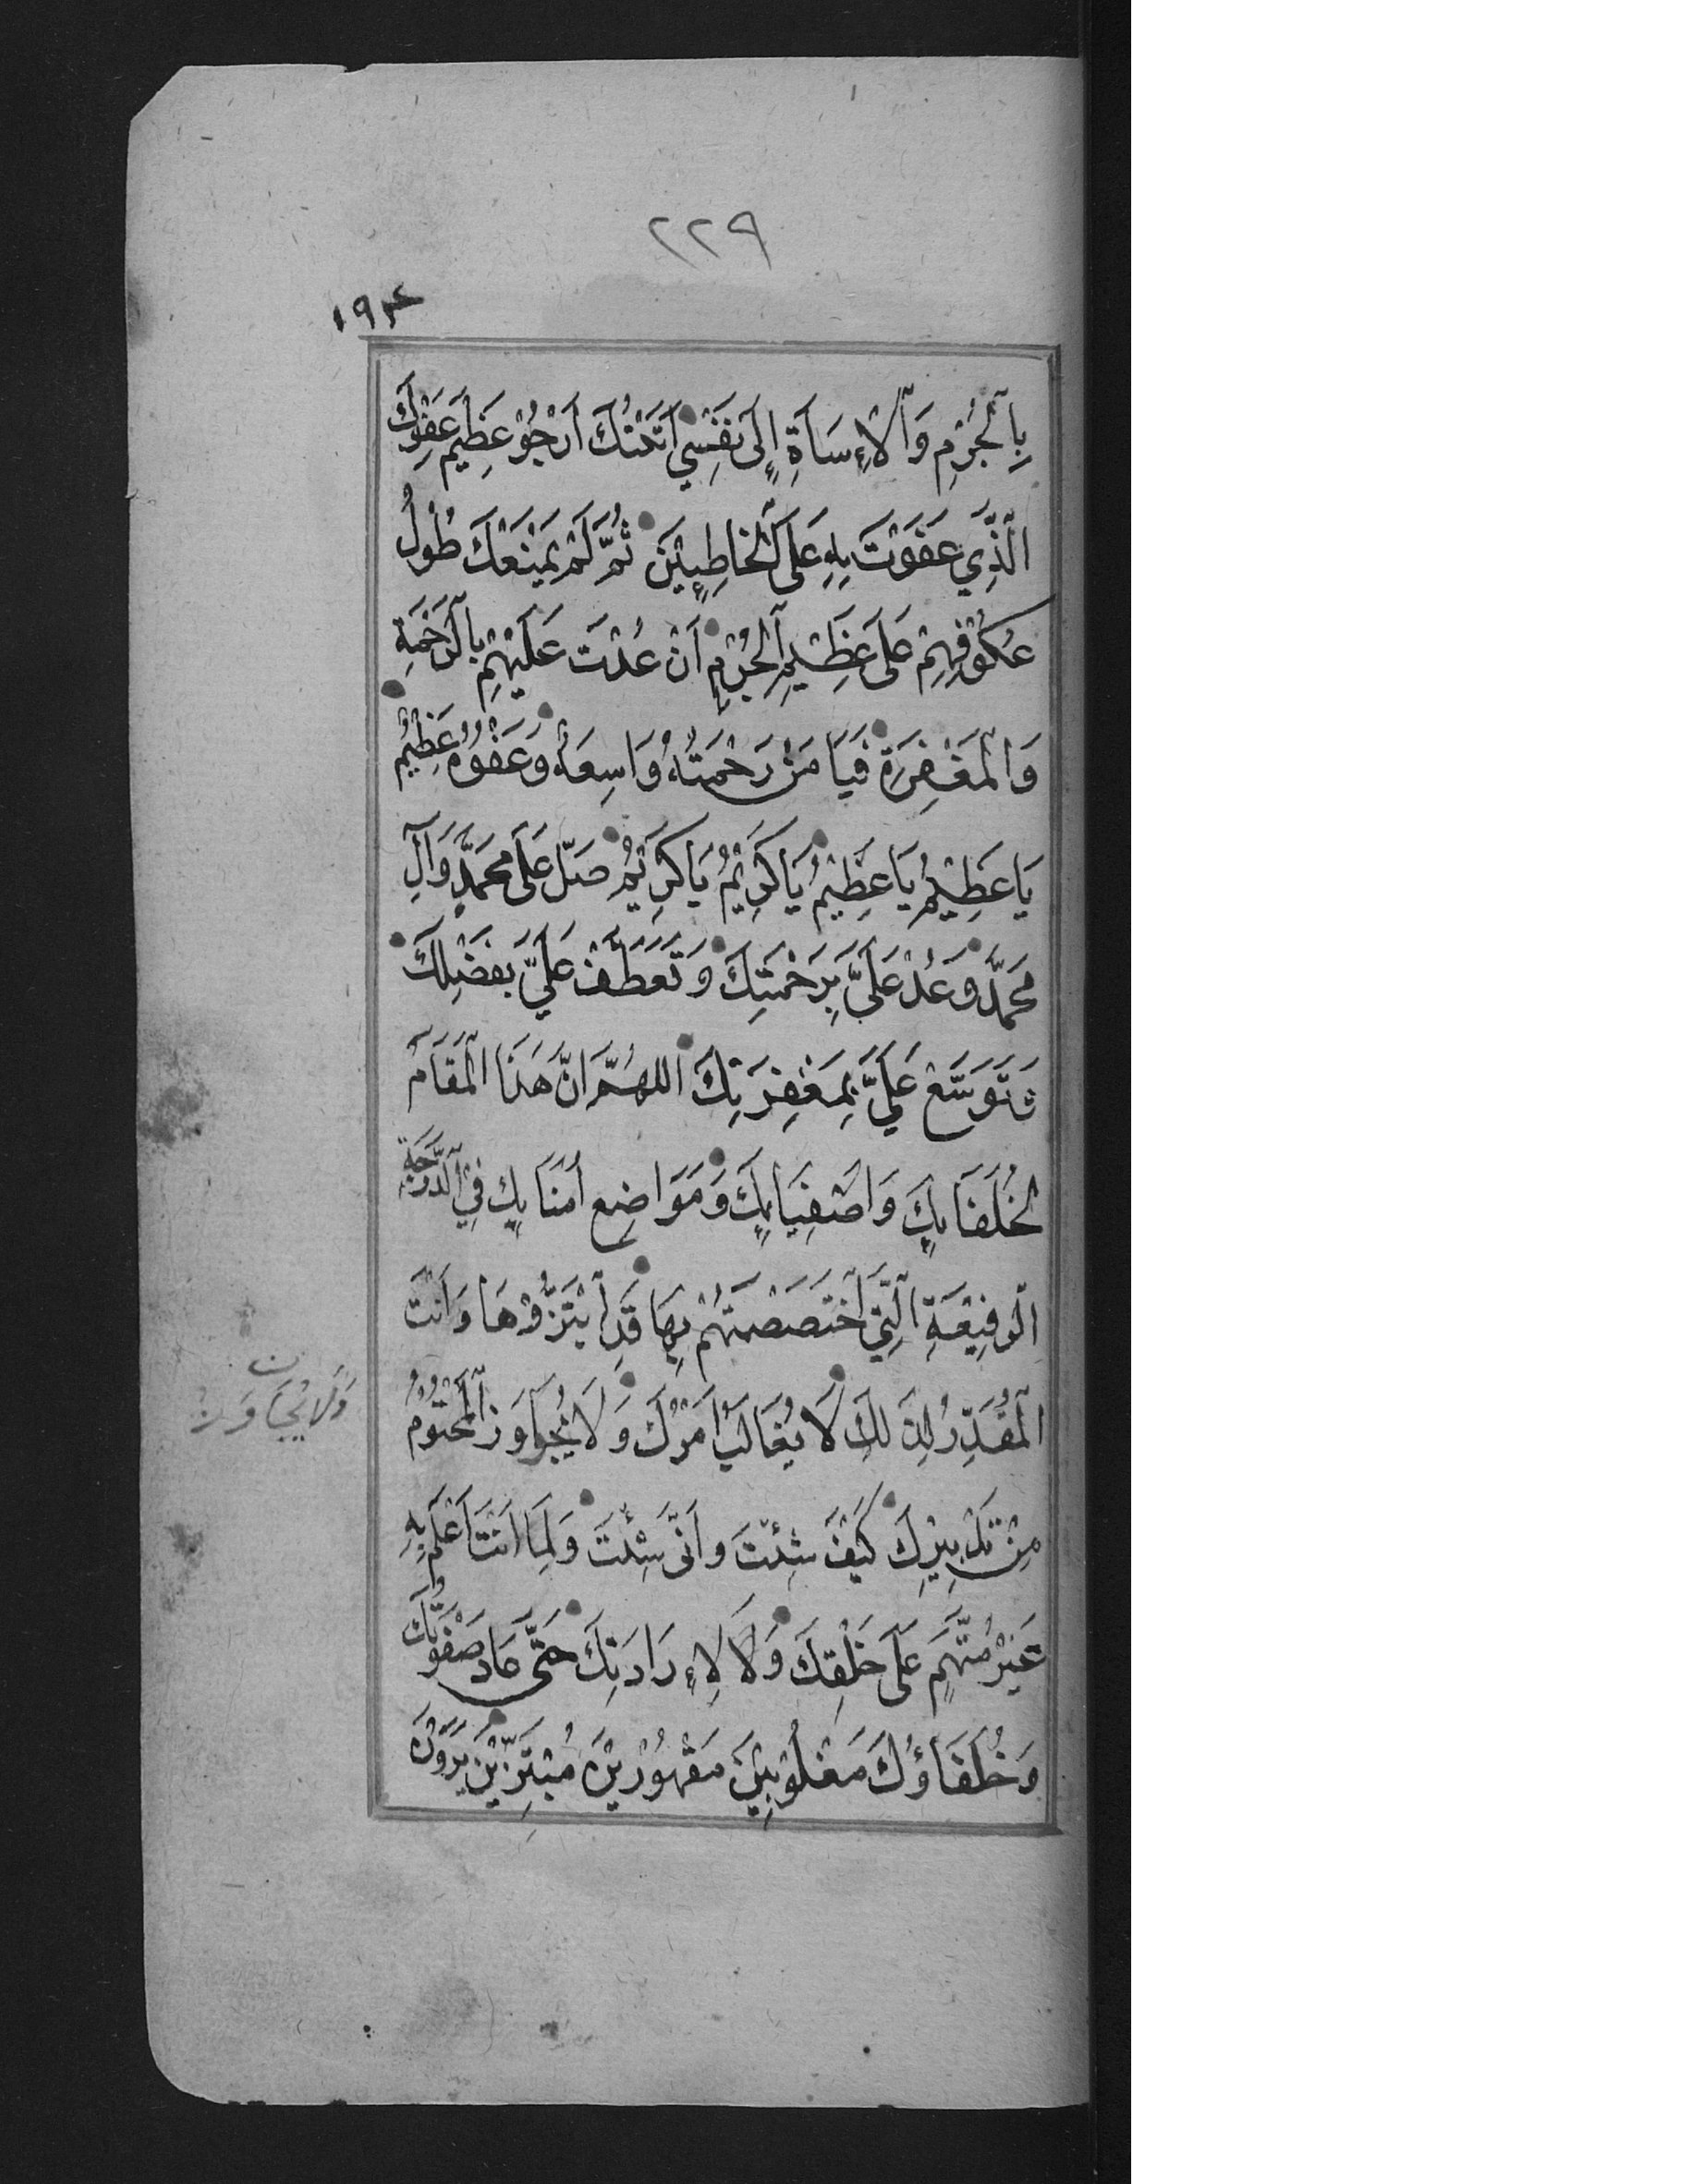 ٢٢٩
١٩٤
بِالْجُرْمِ وَالْاِسَاۤةِ اِلىٰ نَفْسِي اَتَيْتُكَ اَرْجُوْ عَظِيْمَ عَفْوِكَ
الَّذِي عَفَوْتَ بِهِ عَلَى الْخَاطِئِيْنَ ثُمَّ لَمْ يَمْنَعْكَ طُوْلُ
عُكُوْفِهِمْ عَلىٰ عَظِيْمِ الْجُرْمِ اَنْ عُدْتَ عَلَيْهِمْ بِالرَّحْمَةِ
وَالْمَغْفِرَةِ فَيَا مَنْ رَحْمَتُهُ وَاسِعَةٌ وَعَفْوُهُ عَظِيْمٌ
يَا عَظِيْمُ يَا عَظِيْمُ يَا كَرِيْمُ يَا كَرِيْمُ صَلِّ عَلىٰ مُحَمَّدٍ وَآلِ
مُحَمَّدٍ وَعُدْ عَلَيَّ بِرَحْمَتِكَ وَتَعَطَّفْ عَلَيَّ بِفَضْلِكَ
وَتَوَسَّعْ عَلَيَّ بِمَغْفِرَتِكَ اللهُمَّ اِنَّ هٰذَا الْمَقَامَ
لِخُلَفَائِكَ وَاَصْفِيَائِكَ وَمَوَاضِعِ اُمَنَائِكَ فِي الدَّرَجَةِ
الرَّفِيْعَةِ الَّتِي اخْتَصَصْتَهُمْ بِهَا قَدِ ابْتَزُّوْهَا وَاَنْتَ
الْمُقَدِّرُ لِذٰلِكَ لَا يُغَالَبُ اَمْرُكَ وَلَا يُجَاوَزُ الْمَحْتُوْمُ
وَلَا يُجَاوَزُ ن
مِنْ تَدْبِيْرِكَ كَيْفَ شِئْتَ وَاَنّٰى شِئْتَ وَلِمَا اَنْتَ اَعْلَمُ بِهِ
غَيْرُ مُتَّهَمٍ عَلىٰ خَلْقِكَ وَلَا لِاِرَادَتِكَ حَتّٰى عَادَ صَفْوَتُكَ
وَخُلَفَاؤُكَ مَغْلُوْبِيْنَ مَقْهُوْرِيْنَ مُبْتَزِّيْنَ يَرَوْنَ